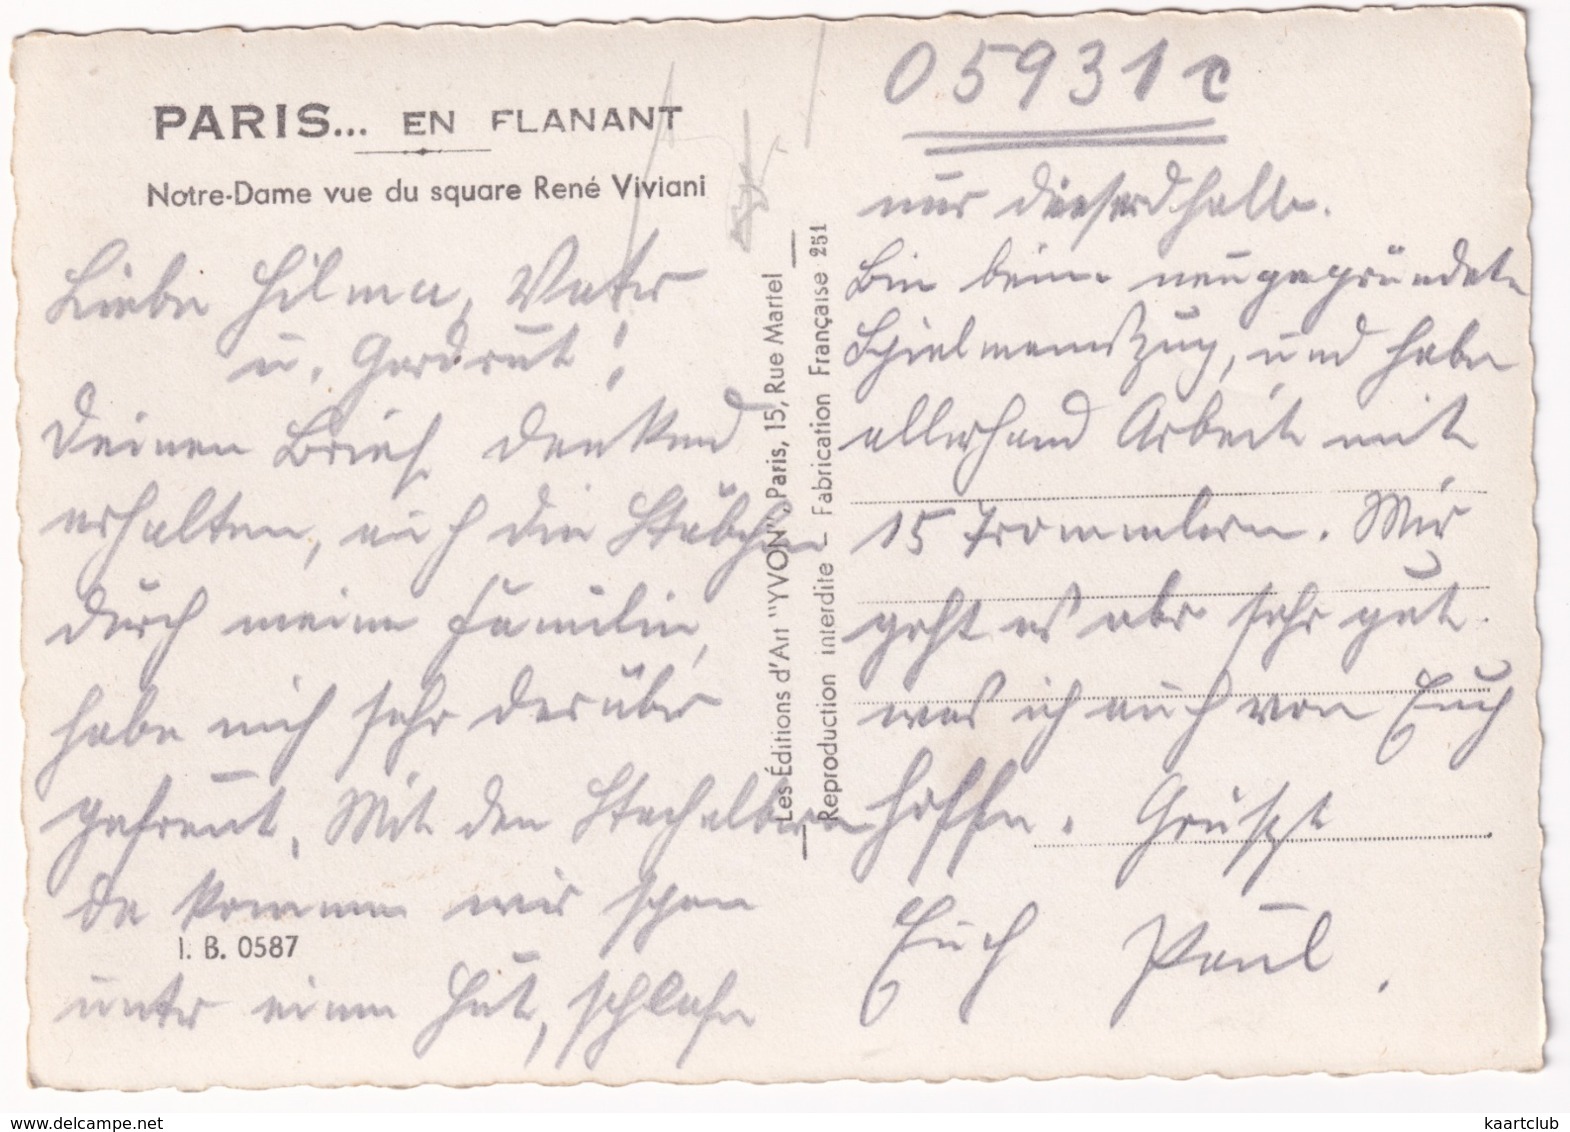 PARIS... EN FLANANT
Notre-Dame vue du square René Viviani
Liebe Hilma, Vater
u. Gerdrut!
Deinen Brief dankend
erhalten, auch die Stäbchen
durch meine Familie,
habe mich sehr darüber
gefreut. Mit den Stachelbeeren
da kommen wir schon
I. B. 0587
unter einen Hut, schlafe
Les Éditions d'Art "YVON", Paris, 15, Rue Martel
Reproduction interdite – Fabrication Française 251
05931c
nur dieserhalb.
Bin beim neugegründete
Spielmannszug, und habe
allerhand Arbeit mit
15 Trommlern. Mir
geht es aber sehr gut.
was ich auch von Euch
hoffe. Grüßt
Euch Paul.
kaartclub